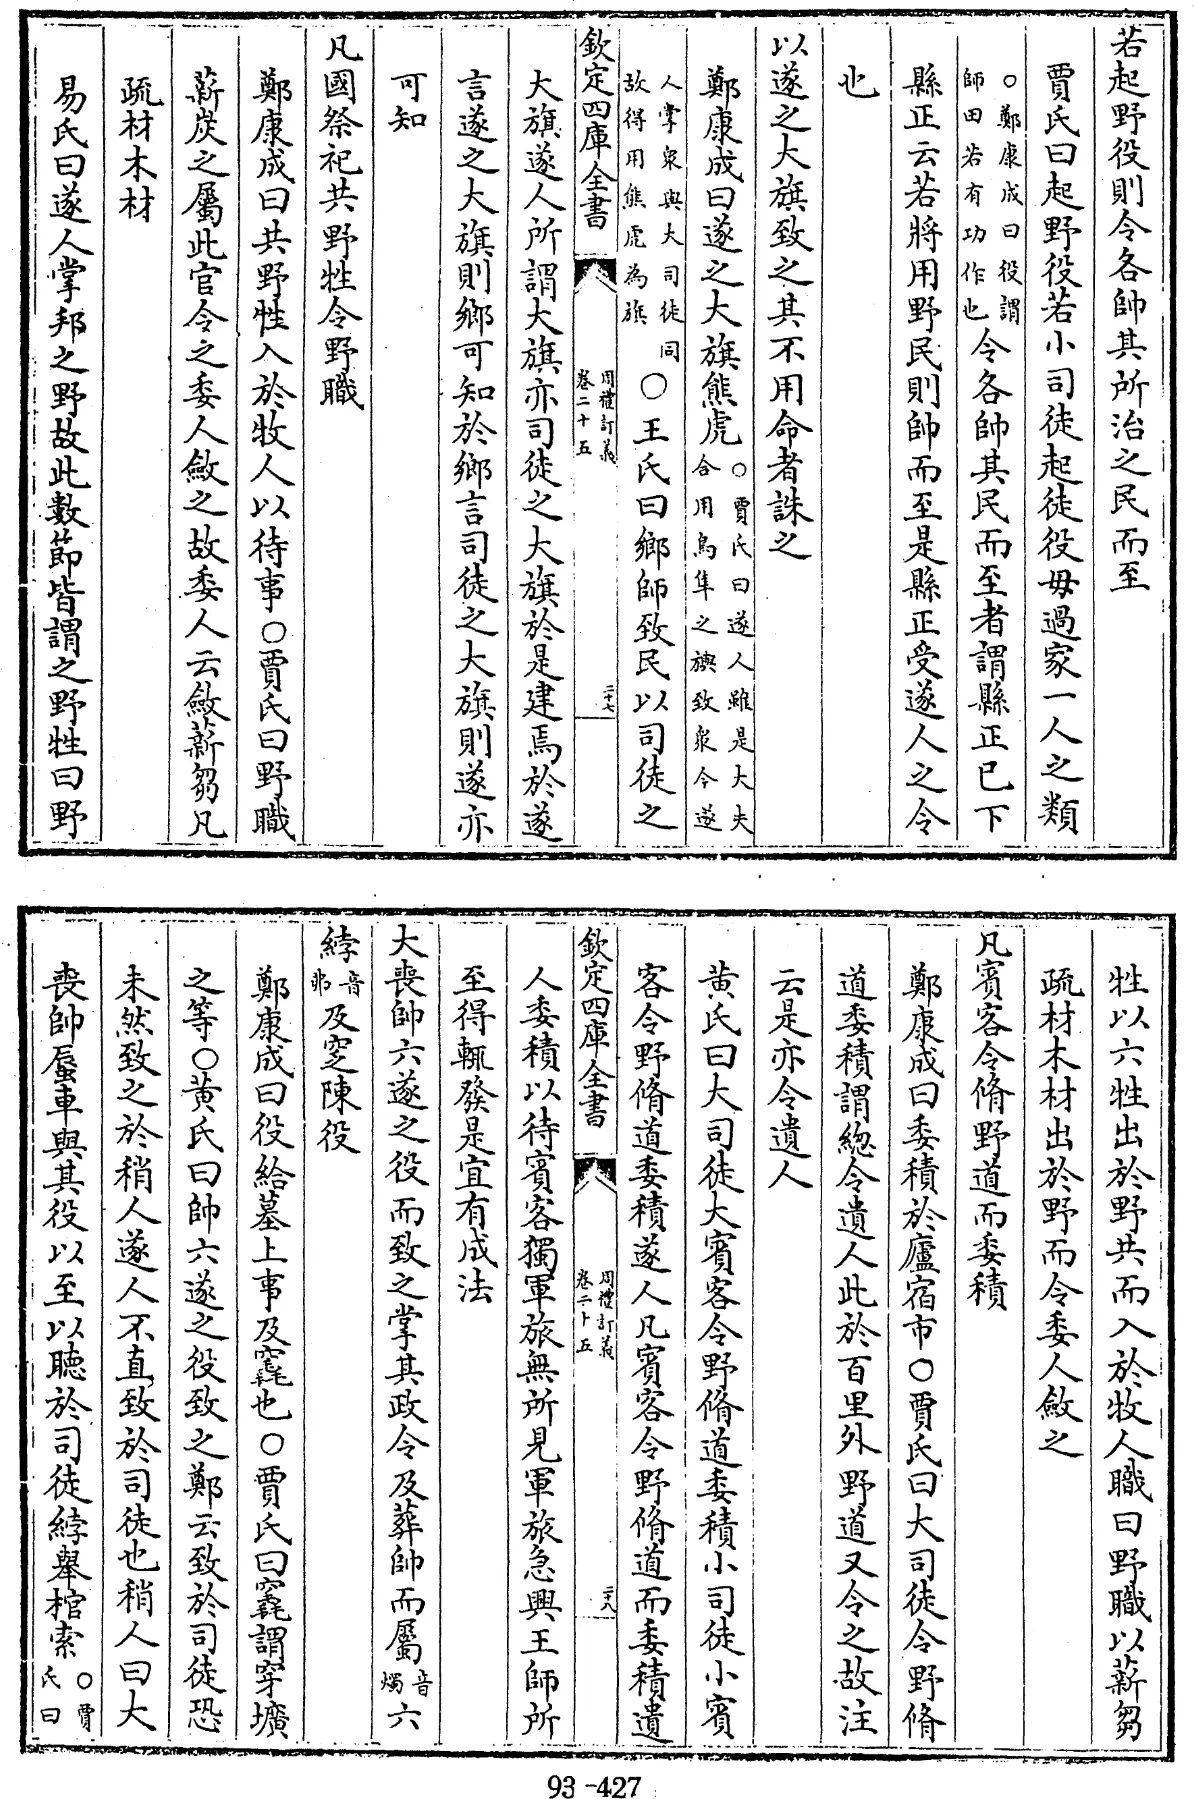 若起野役則令各帥其所治之民而至
賈氏曰起野役若小司徒起徒役毋過家一人之類
○鄭康成曰役謂
師田若有功作也
令各帥其民而至者謂縣正已下
縣正云若將用野民則帥而至是縣正受遂人之令
也
以遂之大旗致之其不用命者誅之
鄭康成曰遂之大旗熊虎
○賈氏曰遂人雖是大夫
合用鳥隼之旟致衆今遂
人掌衆與大司徒同
故得用熊虎為旗
○王氏曰鄉師致民以司徒之
欽定四庫全書
周禮訂義
卷二十五
二十七
大旗遂人所謂大旗亦司徒之大旗於是建焉於遂
言遂之大旗則鄉可知於鄉言司徒之大旗則遂亦
可知
凡國祭祀共野牲令野職
鄭康成曰共野牲入於牧人以待事○賈氏曰野職
薪炭之屬此官令之委人斂之故委人云斂薪芻凡
疏材木材
易氏曰遂人掌邦之野故此數節皆謂之野牲曰野
牲以六牲出於野共而入於牧人職曰野職以薪芻
疏材木材出於野而令委人斂之
凡賓客令脩野道而委積
鄭康成曰委積於廬宿市○賈氏曰大司徒令野脩
道委積謂總令遺人此於百里外野道又令之故注
云是亦令遺人
黄氏曰大司徒大賓客令野脩道委積小司徒小賓
客令野脩道委積遂人凡賓客令野脩道而委積遺
欽定四庫全書
周禮訂義
卷二十五
二十八
人委積以待賓客獨軍旅無所見軍旅急興王師所
至得輒發是宜有成法
大喪帥六遂之役而致之掌其政令及葬帥而屬
音
燭
六
綍
音
弗
及窆陳役
鄭康成曰役給墓上事及竁也○賈氏曰竁謂穿壙
之等○黄氏曰帥六遂之役致之鄭云致於司徒恐
未然致之於稍人遂人不直致於司徒也稍人曰大
喪帥蜃車與其役以至以聽於司徒綍舉棺索
○賈
氏曰
93-427